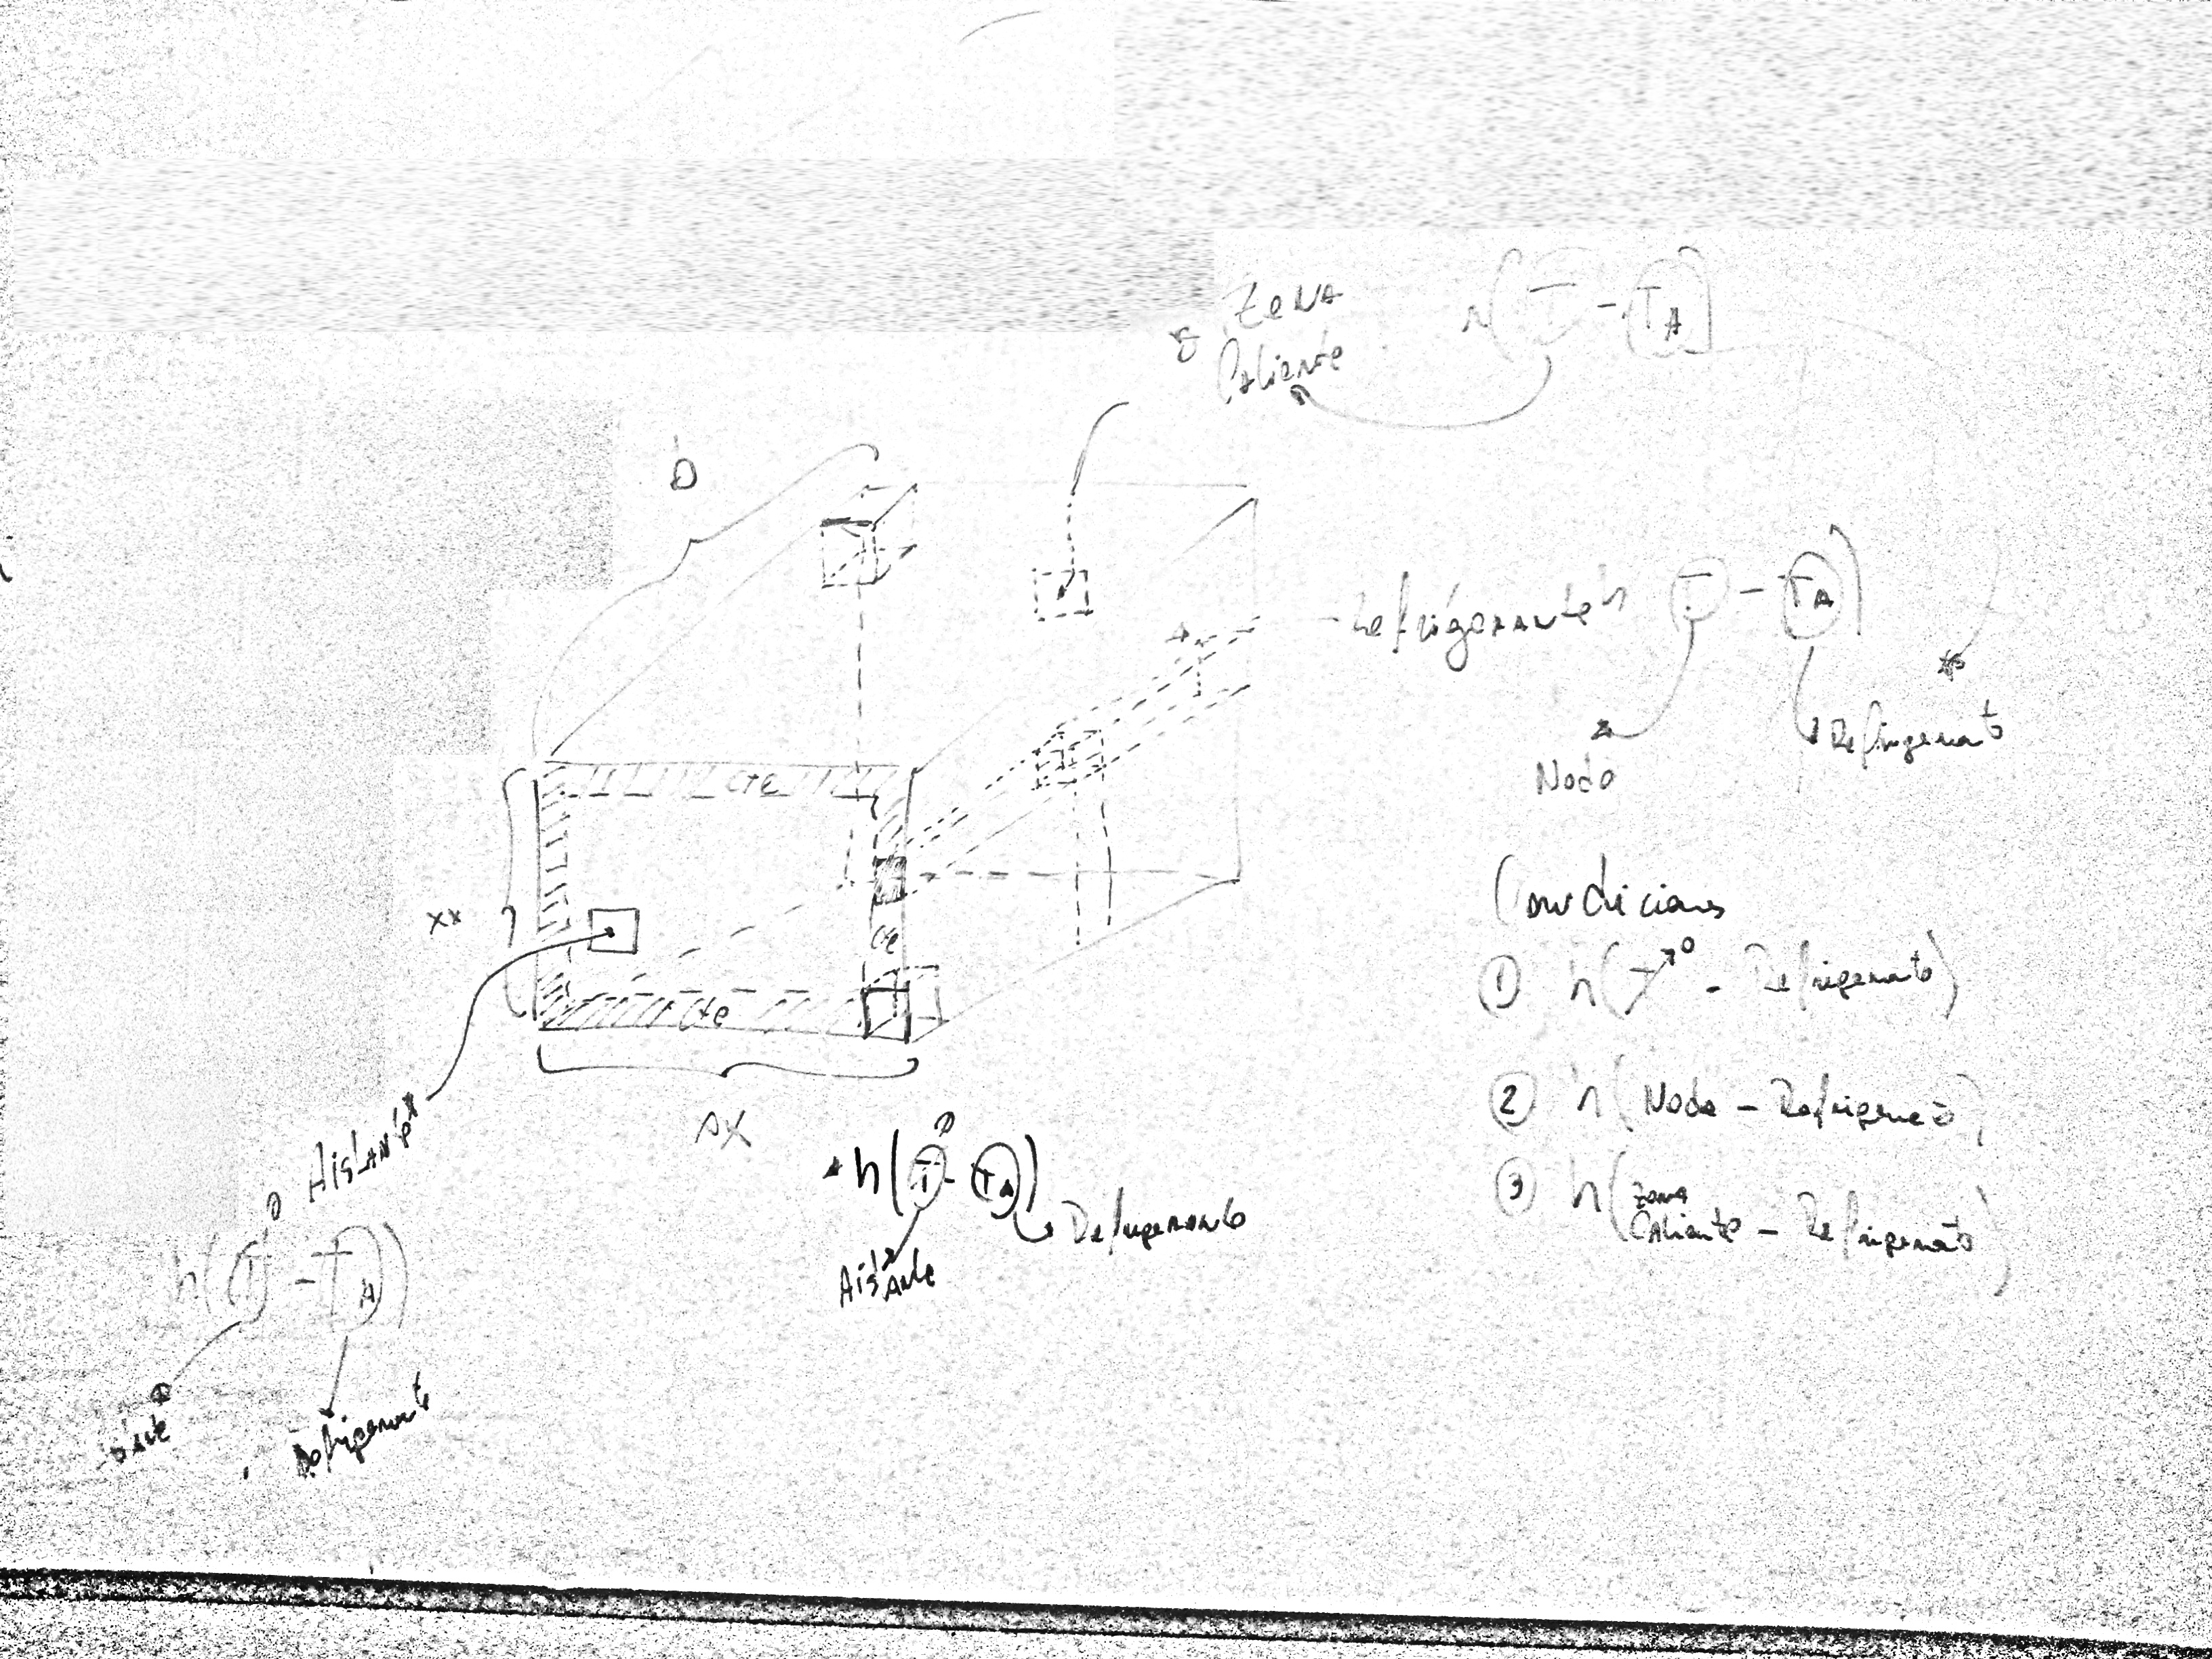 Zona
Caliente
h(T - TA)
b
Refrigerante h (T - TA)
Nodo
Refrigerante
cte
xx
cte
cte
Δx
Aislante
h(T - TA)
Refrigerante
h(T - TA)
Aislante
Refrigerante
Condiciones
① h(T→0 - Refrigerante)
② h(Nodo - Refrigerante)
③ h(Zona
Caliente - Refrigerante)